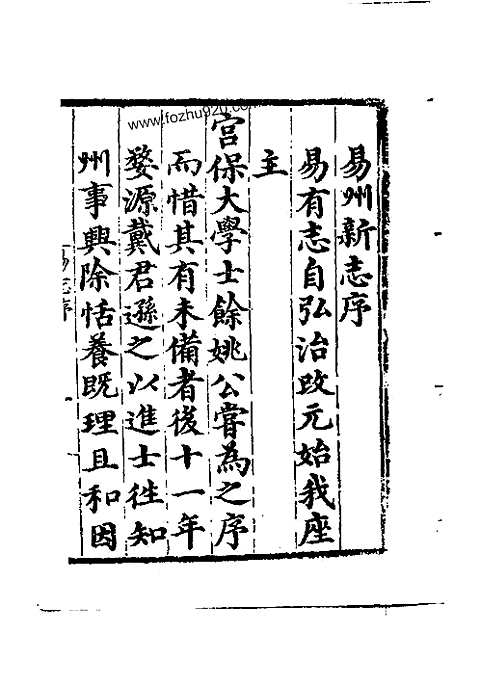 易州新志序
易有志自弘治改元始我座
主
宮保大學士餘姚公嘗為之序
而惜其有未備者後十一年
婺源戴君遜之以進士往知
州事興除恬養既理且和因
易志序
www.fozhu920.com